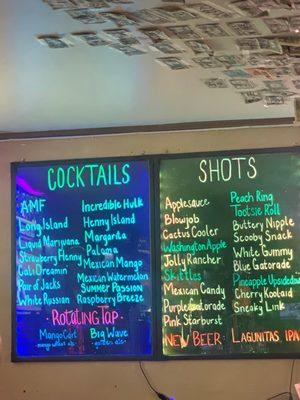 COCKTAILS
AMF
Long Island
Liquid Marijuana
Strawberry Henny
Cali Dreamin
Pair of Jacks
White Russian
Incredible Hulk
Henny Island
Margarita
Paloma
Mexican Mango
Mexican Watermelon
Summer Passion
Raspberry Breeze
Rotating Tap
Mango Cart
Big Wave
- golden ale -
SHOTS
Applesauce
Blowjob
Cactus Cooler
Washington Apple
Jolly Rancher
Skittles
Mexican Candy
Purple Gatorade
Pink Starburst
Peach Ring
Tootsie Roll
Buttery Nipple
Scooby Snack
White Gummy
Blue Gatorade
Pineapple Upsidedown
Cherry Kootaid
Sneaky Link
NEW BEER: LAGUNITAS IPA